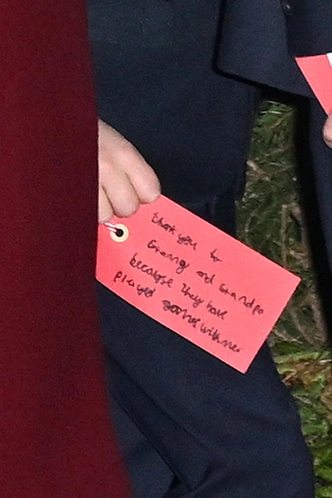 thank you to
Granny and Grandpa
because they have
played games with me